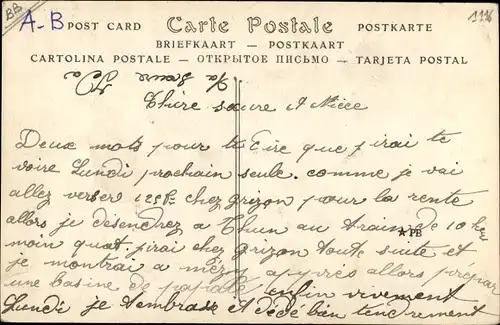 BB
A-B
1196
POST CARD Carte Postale POSTKARTE
BRIEFKAART — POSTKAART
CARTOLINA POSTALE — ОТКРЫТОЕ ПИСЬМО — TARJETA POSTAL
Ta Soeure
Chére soeure et Niéce
Deux mots pour te dire que j'irai te
voire Lundi prochain seule. comme je vai
allez verser 125F chez grizon pour la rente
alors je désendrez a Thuin au train de 10 heu
moin quat. j'irai chez grizon toute suite et
★PB
je montrai a mézy apyrés allors prépar
une basine de patate enfin vivement
Lundi je t'embrasse et dédé bien tendrement